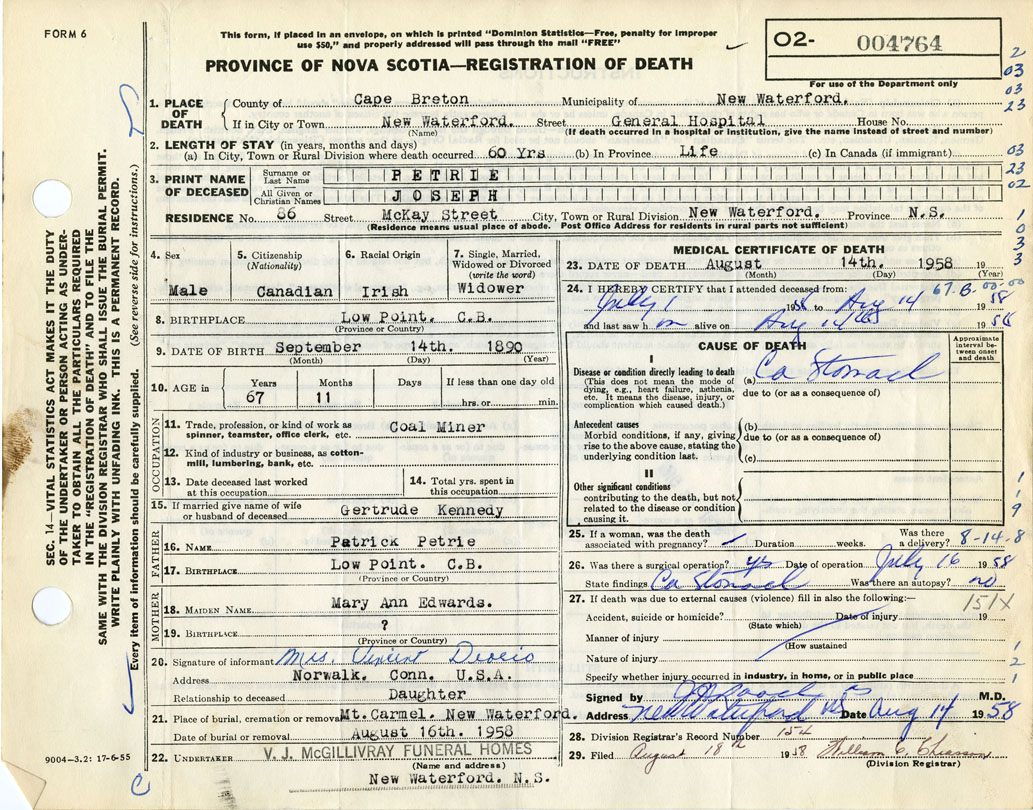 FORM 6
This form, if placed in an envelope, on which is printed "Dominion Statistics—Free, penalty for improper
use $50," and properly addressed will pass through the mail "FREE"
O2- 004764
For use of the Department only
PROVINCE OF NOVA SCOTIA—REGISTRATION OF DEATH
2
03
03
23
1. PLACE OF DEATH
County of Cape Breton Municipality of New Waterford.
If in City or Town New Waterford. Street General Hospital House No.
(Name) (If death occurred in a hospital or institution, give the name instead of street and number)
2. LENGTH OF STAY (in years, months and days)
(a) In City, Town or Rural Division where death occurred 60 Yrs (b) In Province Life (c) In Canada (if immigrant)
03
23
02
3. PRINT NAME OF DECEASED
Surname or Last Name PETRIE
All Given or Christian Names JOSEPH
RESIDENCE No. 86 Street McKay Street City, Town or Rural Division New Waterford. Province N.S.
(Residence means usual place of abode. Post Office Address for residents in rural parts not sufficient)
1
0
3
3
4. Sex Male
5. Citizenship (Nationality) Canadian
6. Racial Origin Irish
7. Single, Married, Widowed or Divorced (write the word) Widower
8. BIRTHPLACE Low Point. C.B.
(Province or Country)
9. DATE OF BIRTH September 14th. 1890
(Month) (Day) (Year)
10. AGE in Years 67 Months 11 Days If less than one day old hrs. or min.
OCCUPATION
11. Trade, profession, or kind of work as spinner, teamster, office clerk, etc. Coal Miner
12. Kind of industry or business, as cotton-mill, lumbering, bank, etc.
13. Date deceased last worked at this occupation
14. Total yrs. spent in this occupation
15. If married give name of wife or husband of deceased Gertrude Kennedy
FATHER
16. NAME Patrick Petrie
17. BIRTHPLACE Low Point. C.B.
(Province or Country)
MOTHER
18. MAIDEN NAME Mary Ann Edwards.
19. BIRTHPLACE ?
(Province or Country)
20. Signature of informant Mrs. Vincent
Address Norwalk. Conn. U.S.A.
Relationship to deceased Daughter
21. Place of burial, cremation or removal Mt. Carmel. New Waterford.
Date of burial or removal August 16th. 1958
22. UNDERTAKER V. J. McGILLIVRAY FUNERAL HOMES
(Name and address)
New Waterford. N.S.
MEDICAL CERTIFICATE OF DEATH
23. DATE OF DEATH August 14th. 1958 19
(Month) (Day) (Year)
24. I HEREBY CERTIFY that I attended deceased from: 67.B.00-00
July 1 1958 to Aug 14 1958
and last saw h m alive on Aug 14th 1958
CAUSE OF DEATH
Approximate interval between onset and death
I
Disease or condition directly leading to death
(This does not mean the mode of dying, e.g., heart failure, asthenia, etc. It means the disease, injury, or complication which caused death.)
(a) Ca Stomach
due to (or as a consequence of)
Antecedent causes
Morbid conditions, if any, giving rise to the above cause, stating the underlying condition last.
(b)
due to (or as a consequence of)
(c)
II
Other significant conditions
contributing to the death, but not related to the disease or condition causing it.
1
1
9
25. If a woman, was the death associated with pregnancy? Duration weeks. Was there a delivery? 8-14-8
26. Was there a surgical operation? yes Date of operation July 16 1958
State findings Ca Stomach Was there an autopsy? no
27. If death was due to external causes (violence) fill in also the following:—
151X
Accident, suicide or homicide? Date of injury 19
(State which)
Manner of injury
(How sustained
Nature of injury
Specify whether injury occurred in industry, in home, or in public place
1
2
1
Signed by M.D.
Address New Waterford NS Date Aug 14 1958
28. Division Registrar's Record Number 154
29. Filed August 18th 1958 William C. Chiasson
(Division Registrar)
SEC. 14—VITAL STATISTICS ACT MAKES IT THE DUTY
OF THE UNDERTAKER OR PERSON ACTING AS UNDER-
TAKER TO OBTAIN ALL THE PARTICULARS REQUIRED
IN THE "REGISTRATION OF DEATH" AND TO FILE THE
SAME WITH THE DIVISION REGISTRAR WHO SHALL ISSUE THE BURIAL PERMIT.
WRITE PLAINLY WITH UNFADING INK. THIS IS A PERMANENT RECORD.
Every item of information should be carefully supplied. (See reverse side for instructions.)
9004—3.2: 17-6-55